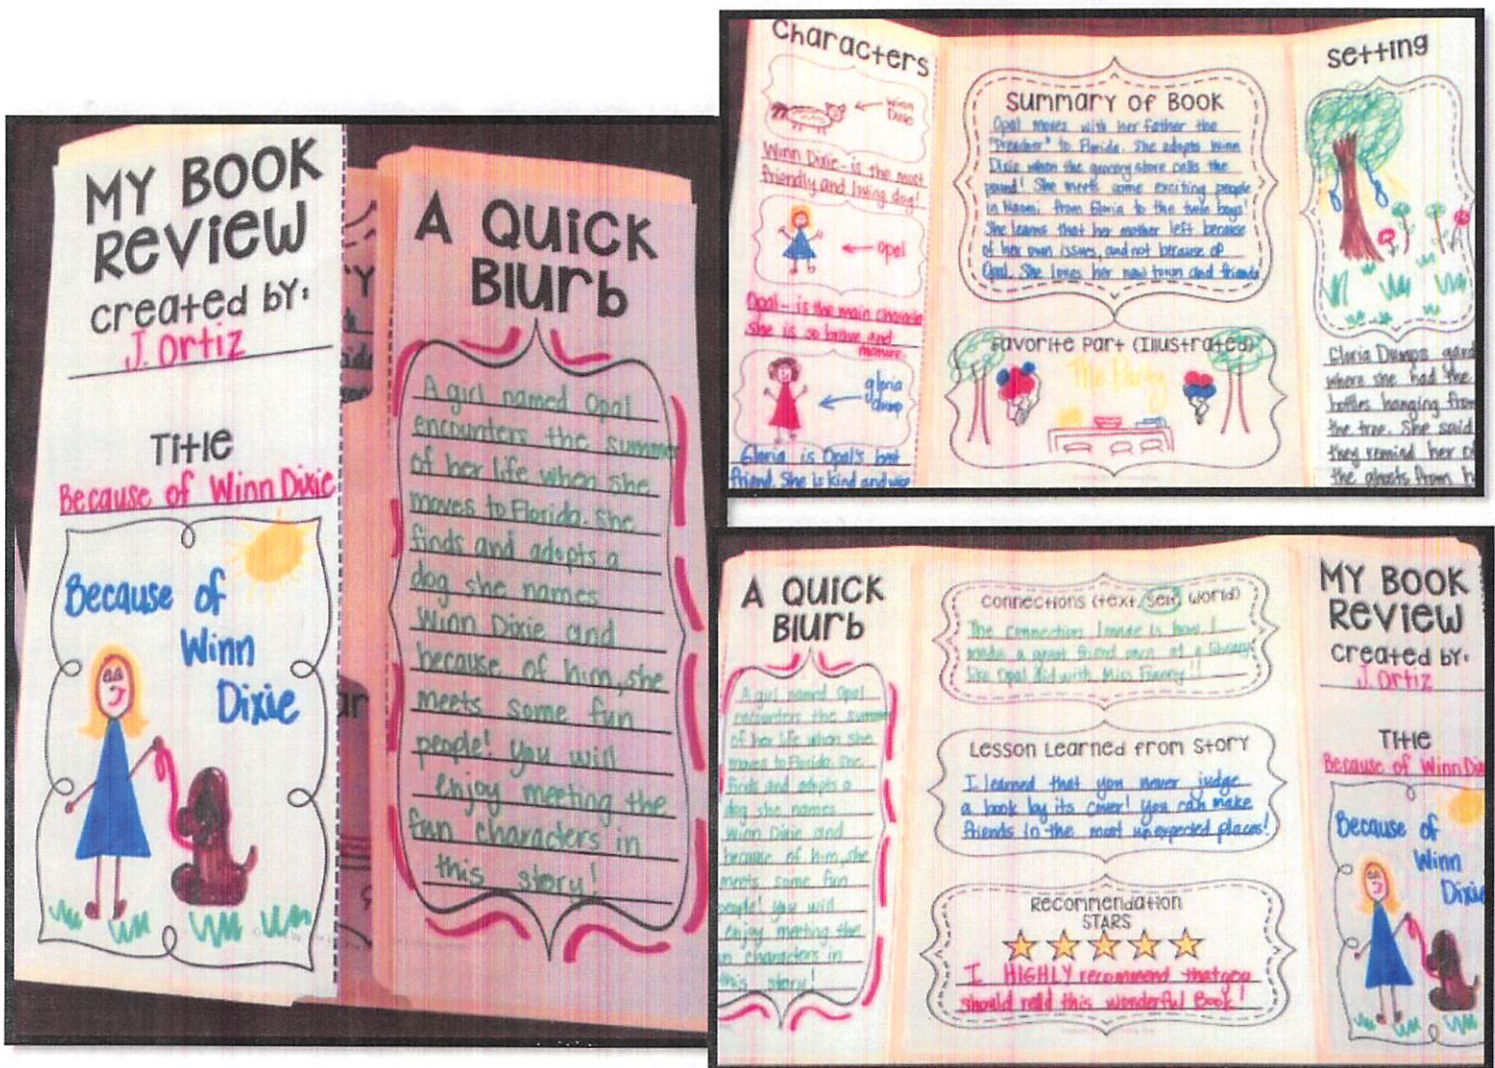 MY BOOK
REVIEW
created by:
J. Ortiz
Title
Because of Winn Dixie
Because of
Winn
Dixie
A QUICK
BLURB
A girl named Opal
encounters the summer
of her life when she
moves to Florida. She
finds and adopts a
dog she names
Winn Dixie and
because of him, she
meets some fun
people! You will
enjoy meeting the
fun characters in
this story!
Characters
Winn
Dixie
Winn Dixie- is the most
friendly and loving dog!
Opal
Opal- is the main character
she is so brave and
mature.
gloria
dump
Gloria is Opal's best
friend. She is kind and wise
Summary of Book
Opal moves with her father the
"Preacher" to Florida. She adopts Winn
Dixie when the grocery store calls the
pound! She meets some exciting people
in Naomi from Gloria to the twin boys!
She learns that her mother left because
of her own issues, and not because of
Opal. She loves her new town and friends
Favorite Part (Illustrated)
The Party
Setting
Gloria Dumps gard
where she had the
bottles hanging from
the tree. She said
they remind her of
the ghosts from h
A QUICK
BLURB
A girl named Opal
encounters the summer
of her life when she
moves to Florida. She
finds and adopts a
dog she names
Winn Dixie and
because of him, she
meets some fun
people! You will
enjoy meeting the
n characters in
this story!
Connections (text, self, world)
The connection I made is how I
made a great friend once at a library
like Opal did with Miss Franny!!
Lesson Learned from Story
I learned that you never judge
a book by its cover! You can make
friends in the most unexpected places!
Recommendation
STARS
I HIGHLY recommend that you
should read this wonderful Book!
MY BOOK
REVIEW
created by:
J. Ortiz
Title
Because of Winn Dix
Because of
Winn
Dixie